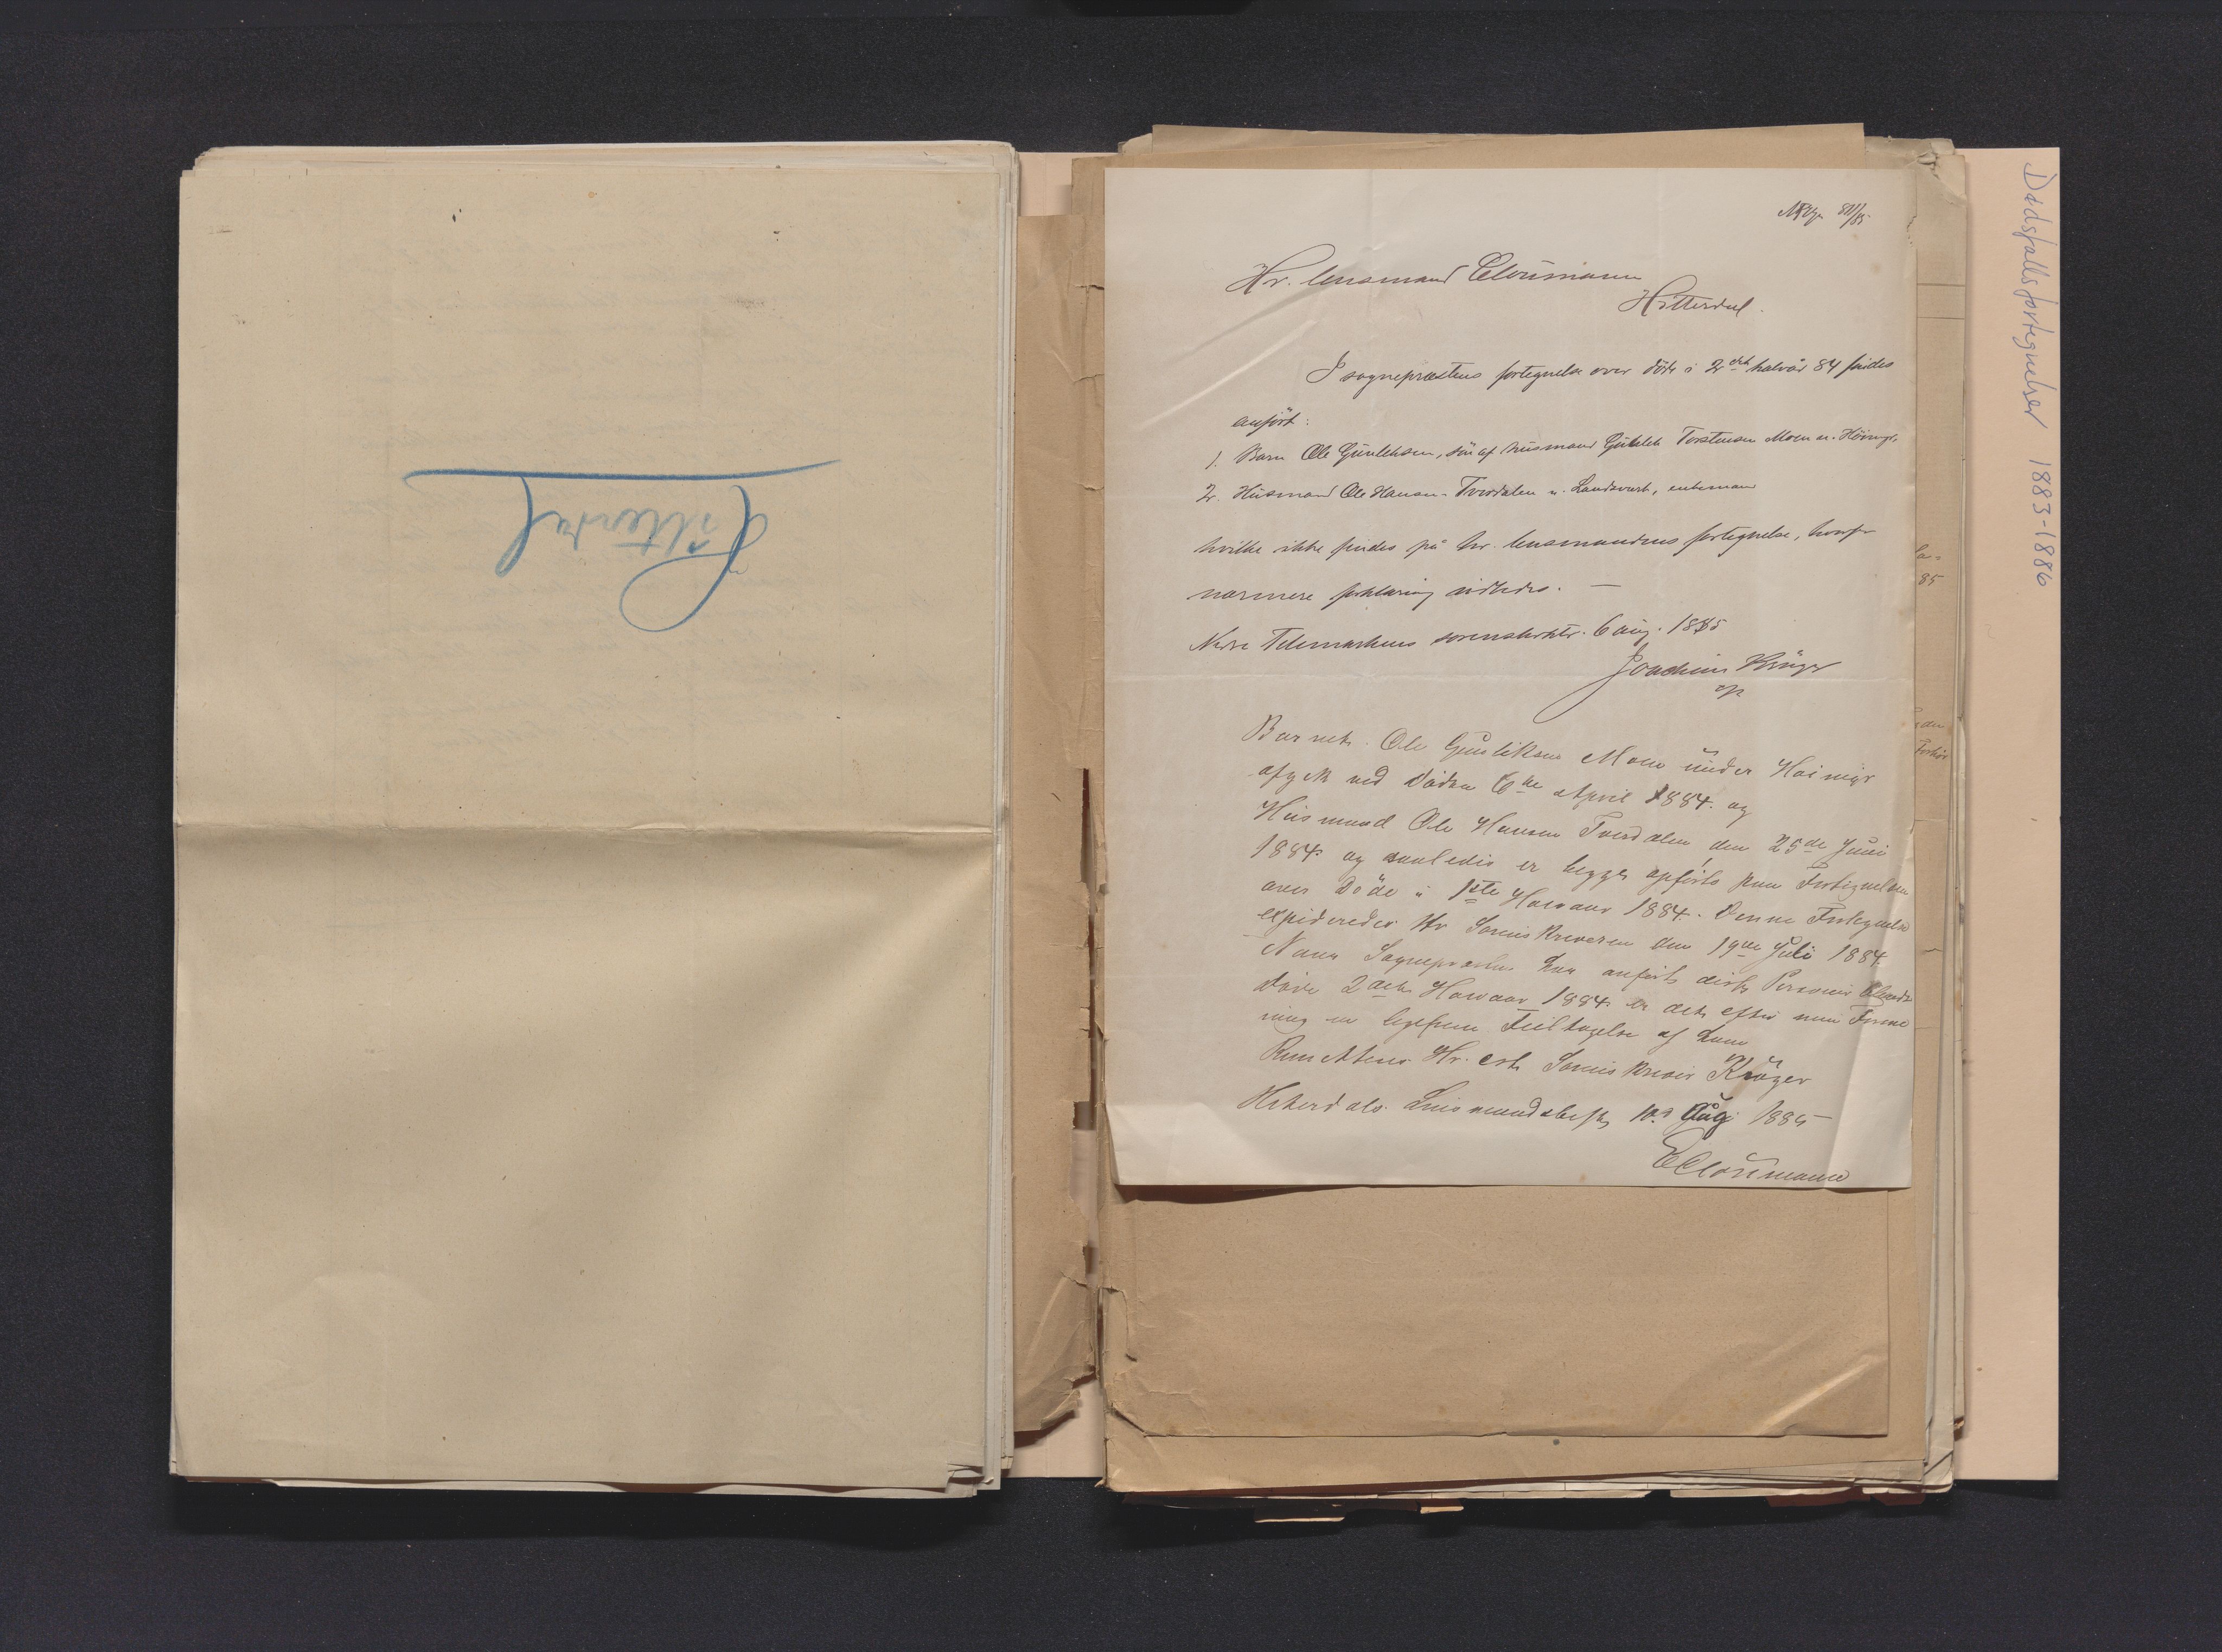 Hitterdal
Hr. lensmand Cloumann
Hitterdal.
I sognepræstens fortegnelse over döde i 2det halvår 84 findes
anfört:
1. Barn Ole Gunleksen, sön af husmand Gunlek Torstensen Moen u. Höimyr,
2. Husmand Ole Hansen Tverdalen u. Landsverk, enkemand
hvilke ikke findes på hr. lensmandens fortegnelse, hvorfor
nærmere forklaring udbedes. —
Nedre Telemarkens sorenskrktr. 6 aug. 1885
Joachim Krüger
Barnet Ole Gunliksen Moen under Höimyr
afgik ved Döden 6te April 1884. og
Husmand Ole Hansen Tverdalen den 25de Juni
1884. og saaledis er begge opförte paa Fortegnelsen
over Döde i 1ste Halvaar 1884. Denne Fortegnelse
expideredes Hr Sorenskriveren den 19de Juli 1884.
Naar Sognepresten har anfört disse Personer blandt
döde 2det Halvaar 1884. er det efter min Forme
ning en ligefrem Feiltagelse af ham
Hr. cst. Sorenskriver Krüger
Hiterdals Lensmandsbest. 10. Aug 1885
E Cloumann
85
Dødsfallsfortegnelser 1883-1886